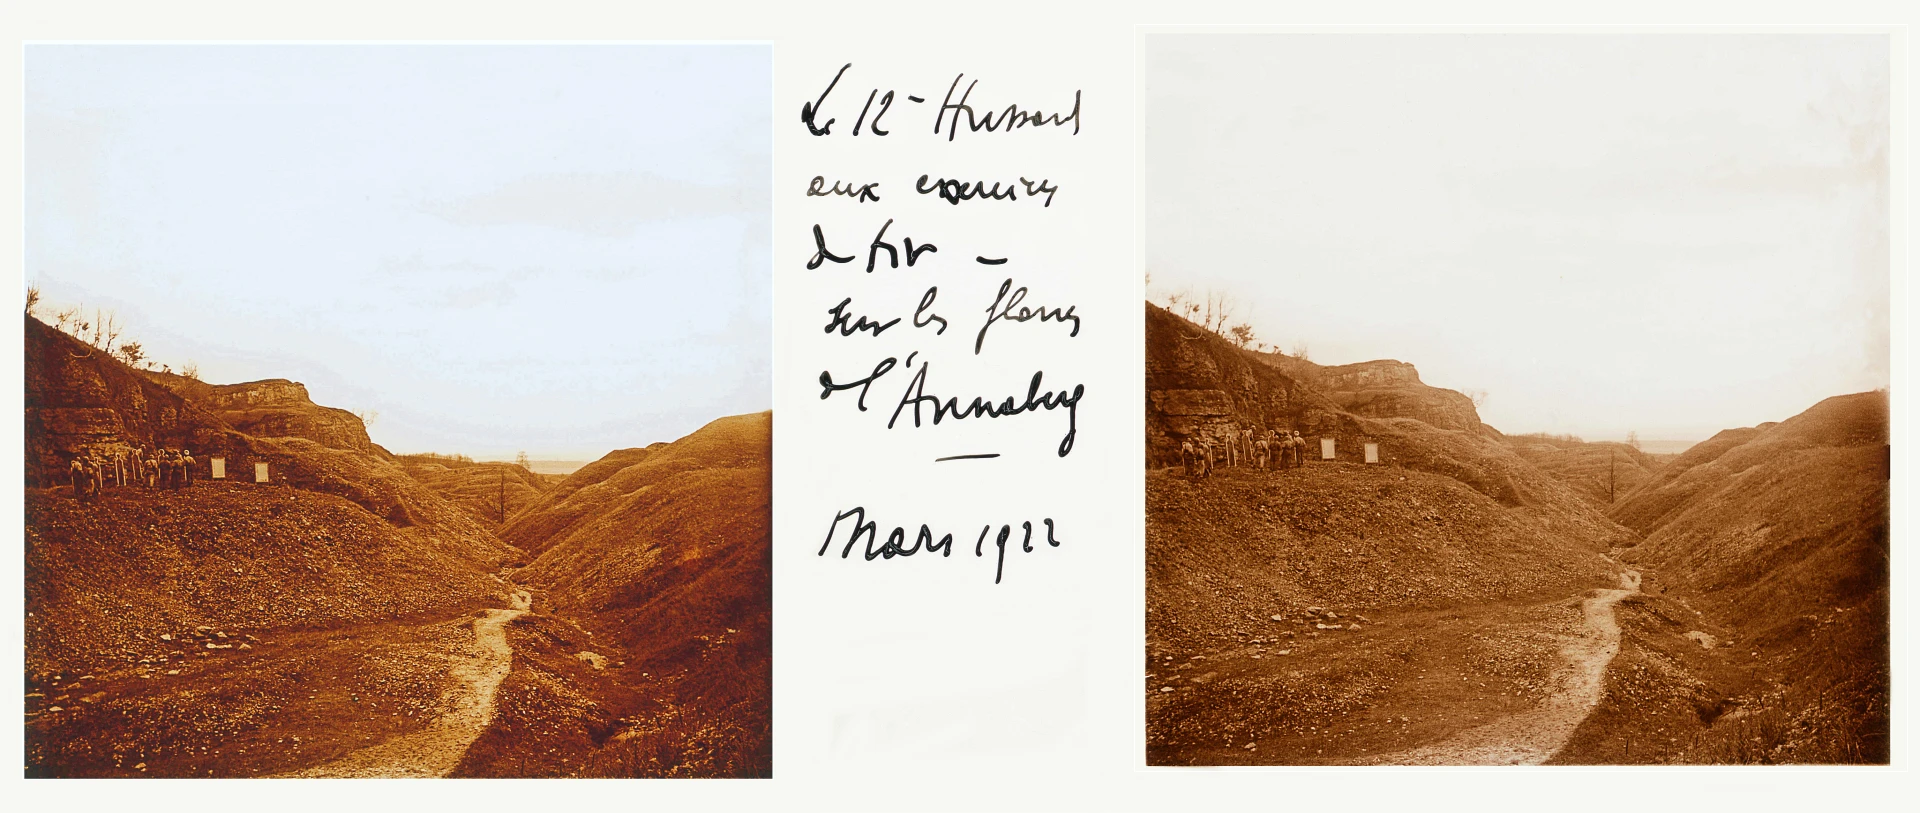 Le 12 - Hussard
aux exercices
de tir -
sur les flancs
de l'Annaberg
Mars 1922